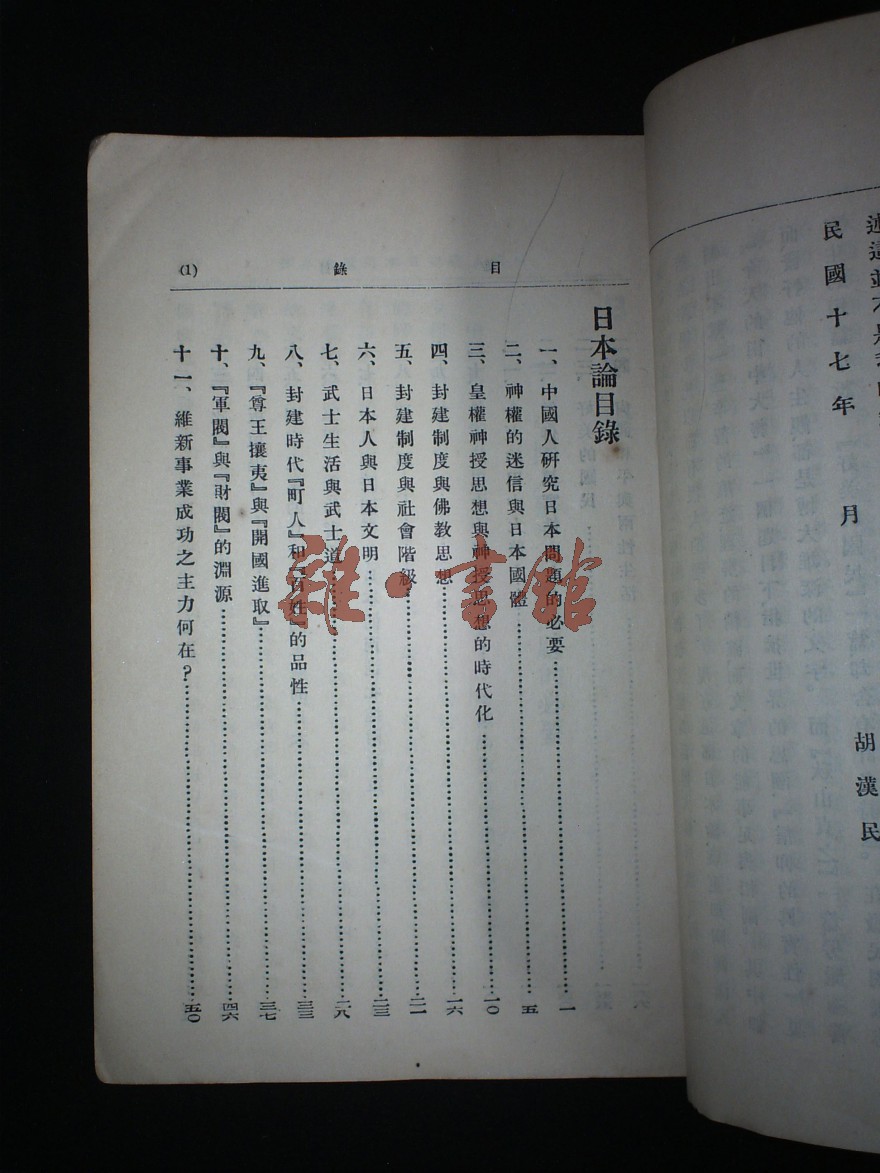 民國十七年　月　胡漢民
目　錄　(1)
日本論目錄
一、中國人研究日本問題的必要……一
二、神權的迷信與日本國體……五
三、皇權神授思想與神授思想的時代化……一〇
四、封建制度與佛教思想……一六
五、封建制度與社會階級……二一
六、日本人與日本文明……二三
七、武士生活與武士道……二八
八、封建時代『町人』和『百姓』的品性……三三
九、『尊王攘夷』與『開國進取』……三七
十、『軍閥』與『財閥』的淵源……四六
十一、維新事業成功之主力何在？……五〇
雜·書館